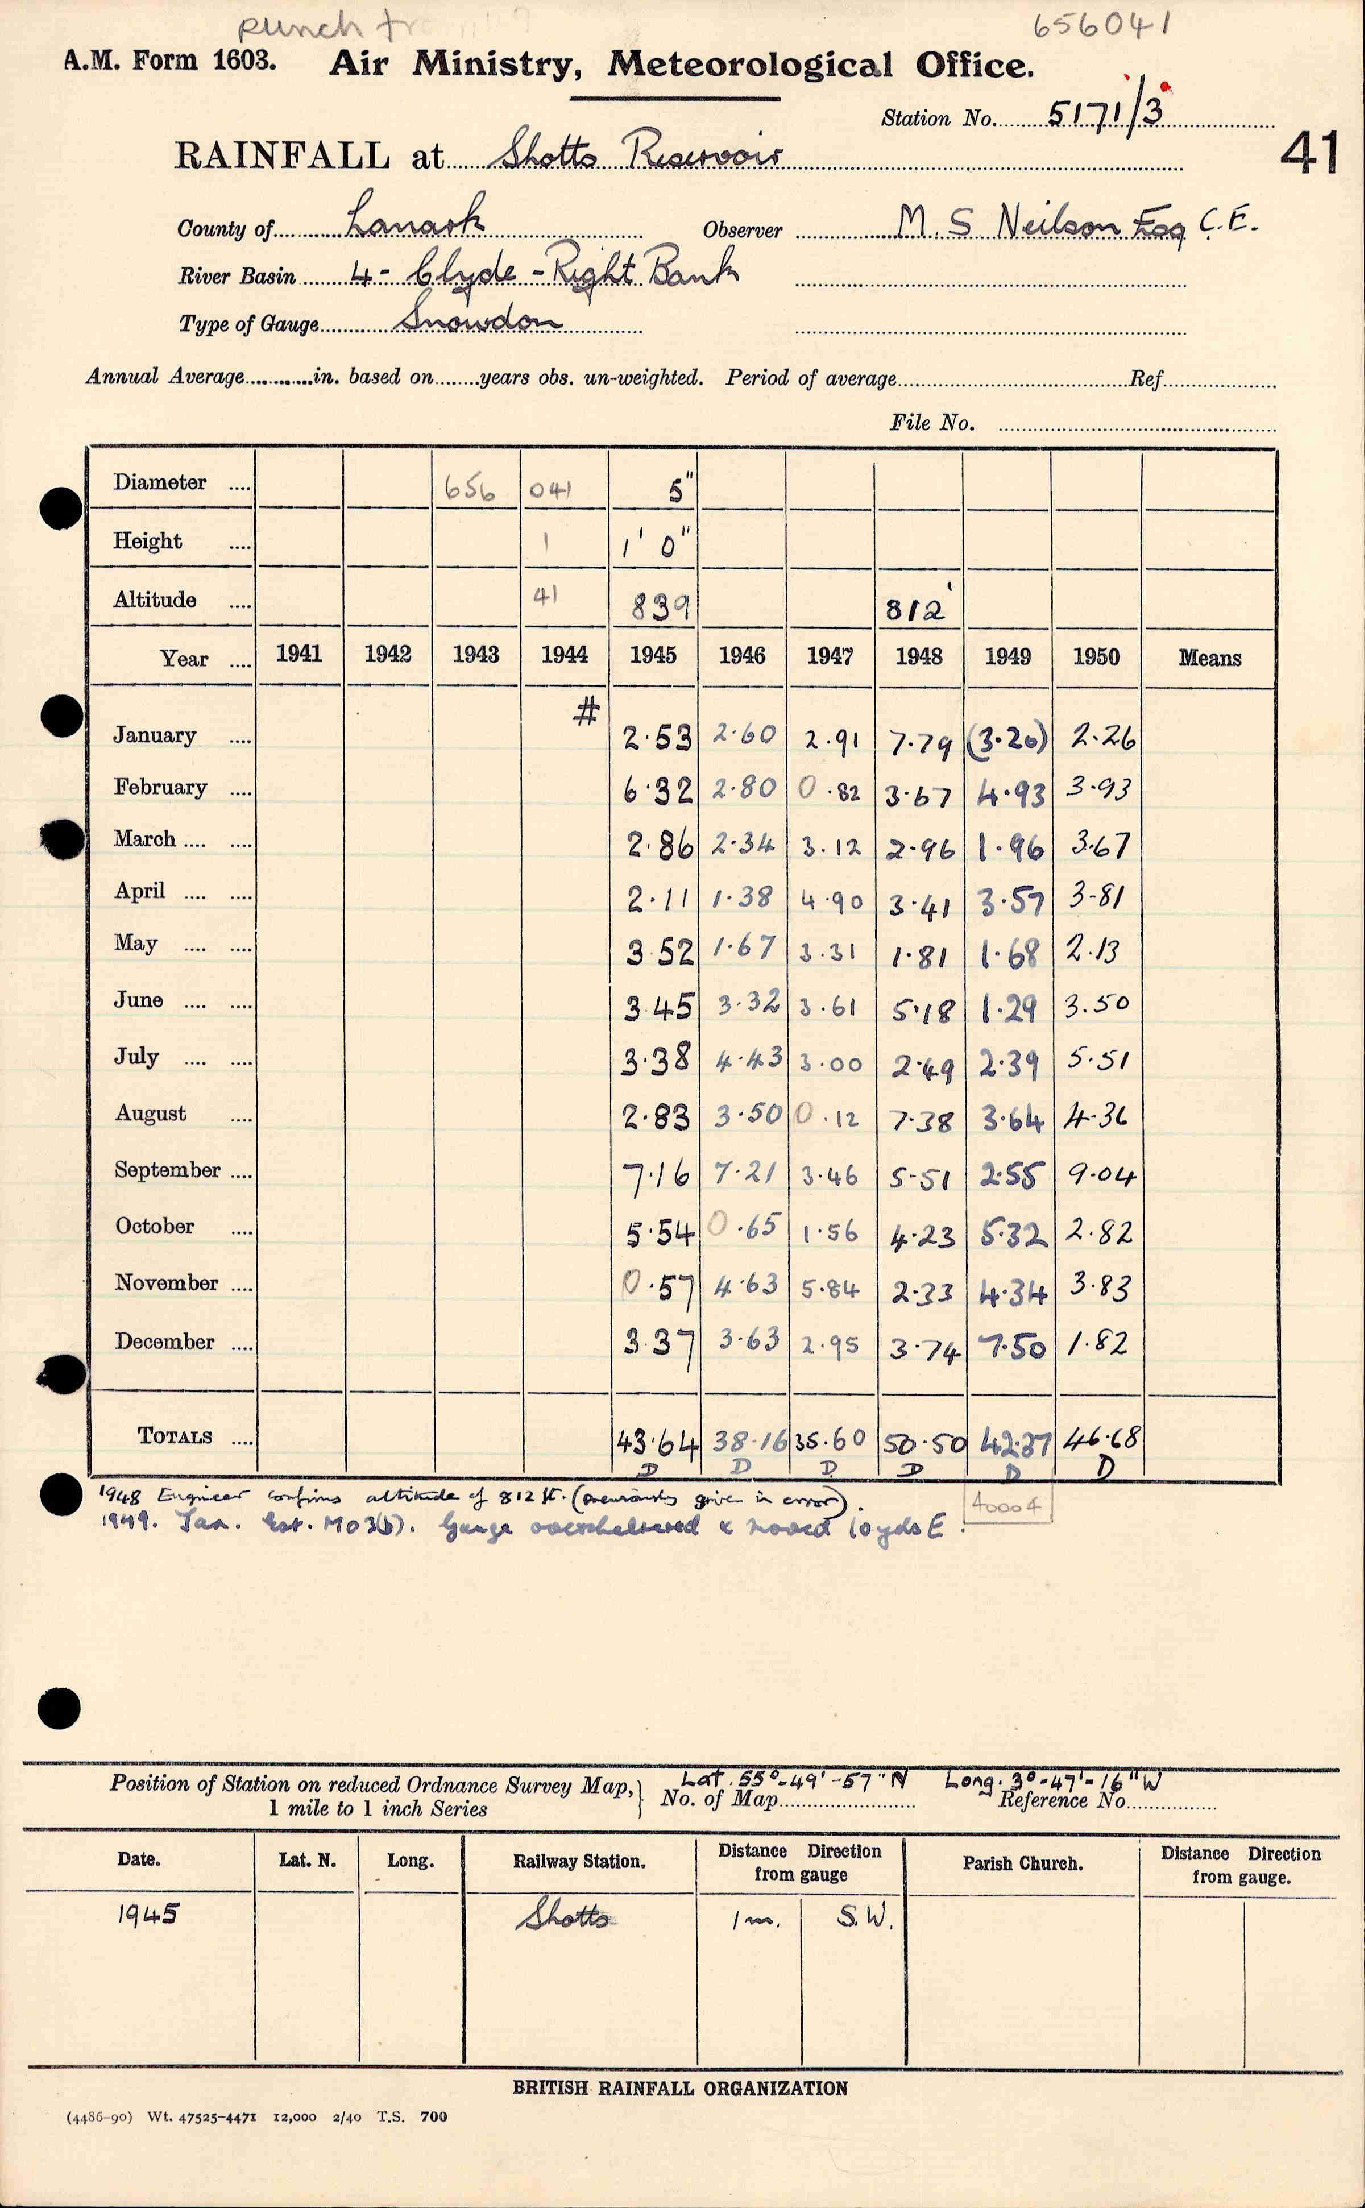 punch
656041
A.M. Form 1603. Air Ministry, Meteorological Office.
Station No. 5171/3
41
RAINFALL at Shotts Reservoir
County of Lanark Observer M. S Neilson Esq C.E.
River Basin 4 - Clyde - Right Bank
Type of Gauge Snowdon
Annual Average............in. based on........years obs. un-weighted. Period of average........Ref........
File No. ........
Diameter .... 656 041 5"
Height .... 1 1' 0"
Altitude .... 41 839 812'
Year .... 1941 1942 1943 1944 1945 1946 1947 1948 1949 1950 Means
#
January .... 2.53 2.60 2.91 7.79 (3.20) 2.26
February .... 6.32 2.80 0.82 3.67 4.93 3.93
March .... .... 2.86 2.34 3.12 2.96 1.96 3.67
April .... .... 2.11 1.38 4.90 3.41 3.57 3-81
May .... .... 3.52 1.67 3.31 1.81 1.68 2.13
June .... .... 3.45 3.32 3.61 5.18 1.29 3.50
July .... .... 3.38 4.43 3.00 2.49 2.39 5.51
August .... 2.83 3.50 0.12 7.38 3.64 4.36
September .... 7.16 7.21 3.46 5-51 2.55 9.04
October .... 5.54 0.65 1.56 4.23 5.32 2.82
November .... 0.57 4.63 5.84 2.33 4.34 3.83
December .... 3.37 3.63 2.95 3.74 7.50 1.82
TOTALS .... 43.64 38.16 35.60 50.50 42.37 46.68
D D D D D D
1948 Engineer confirms altitude of 812 ft. (previously given in error).
40004
1949. Jan. Est. MO3(b). Gauge oversheltered & moved 10 yds E.
Position of Station on reduced Ordnance Survey Map,} Lat. 55°-49'-57"N Long. 3°-47'-16"W
1 mile to 1 inch Series No. of Map........ Reference No........
Date. Lat. N. Long. Railway Station. Distance Direction from gauge Parish Church. Distance Direction from gauge.
1945 Shotts 1 m. S.W.
BRITISH RAINFALL ORGANIZATION
(4486-90) Wt. 47525-4471 12,000 2/40 T.S. 700